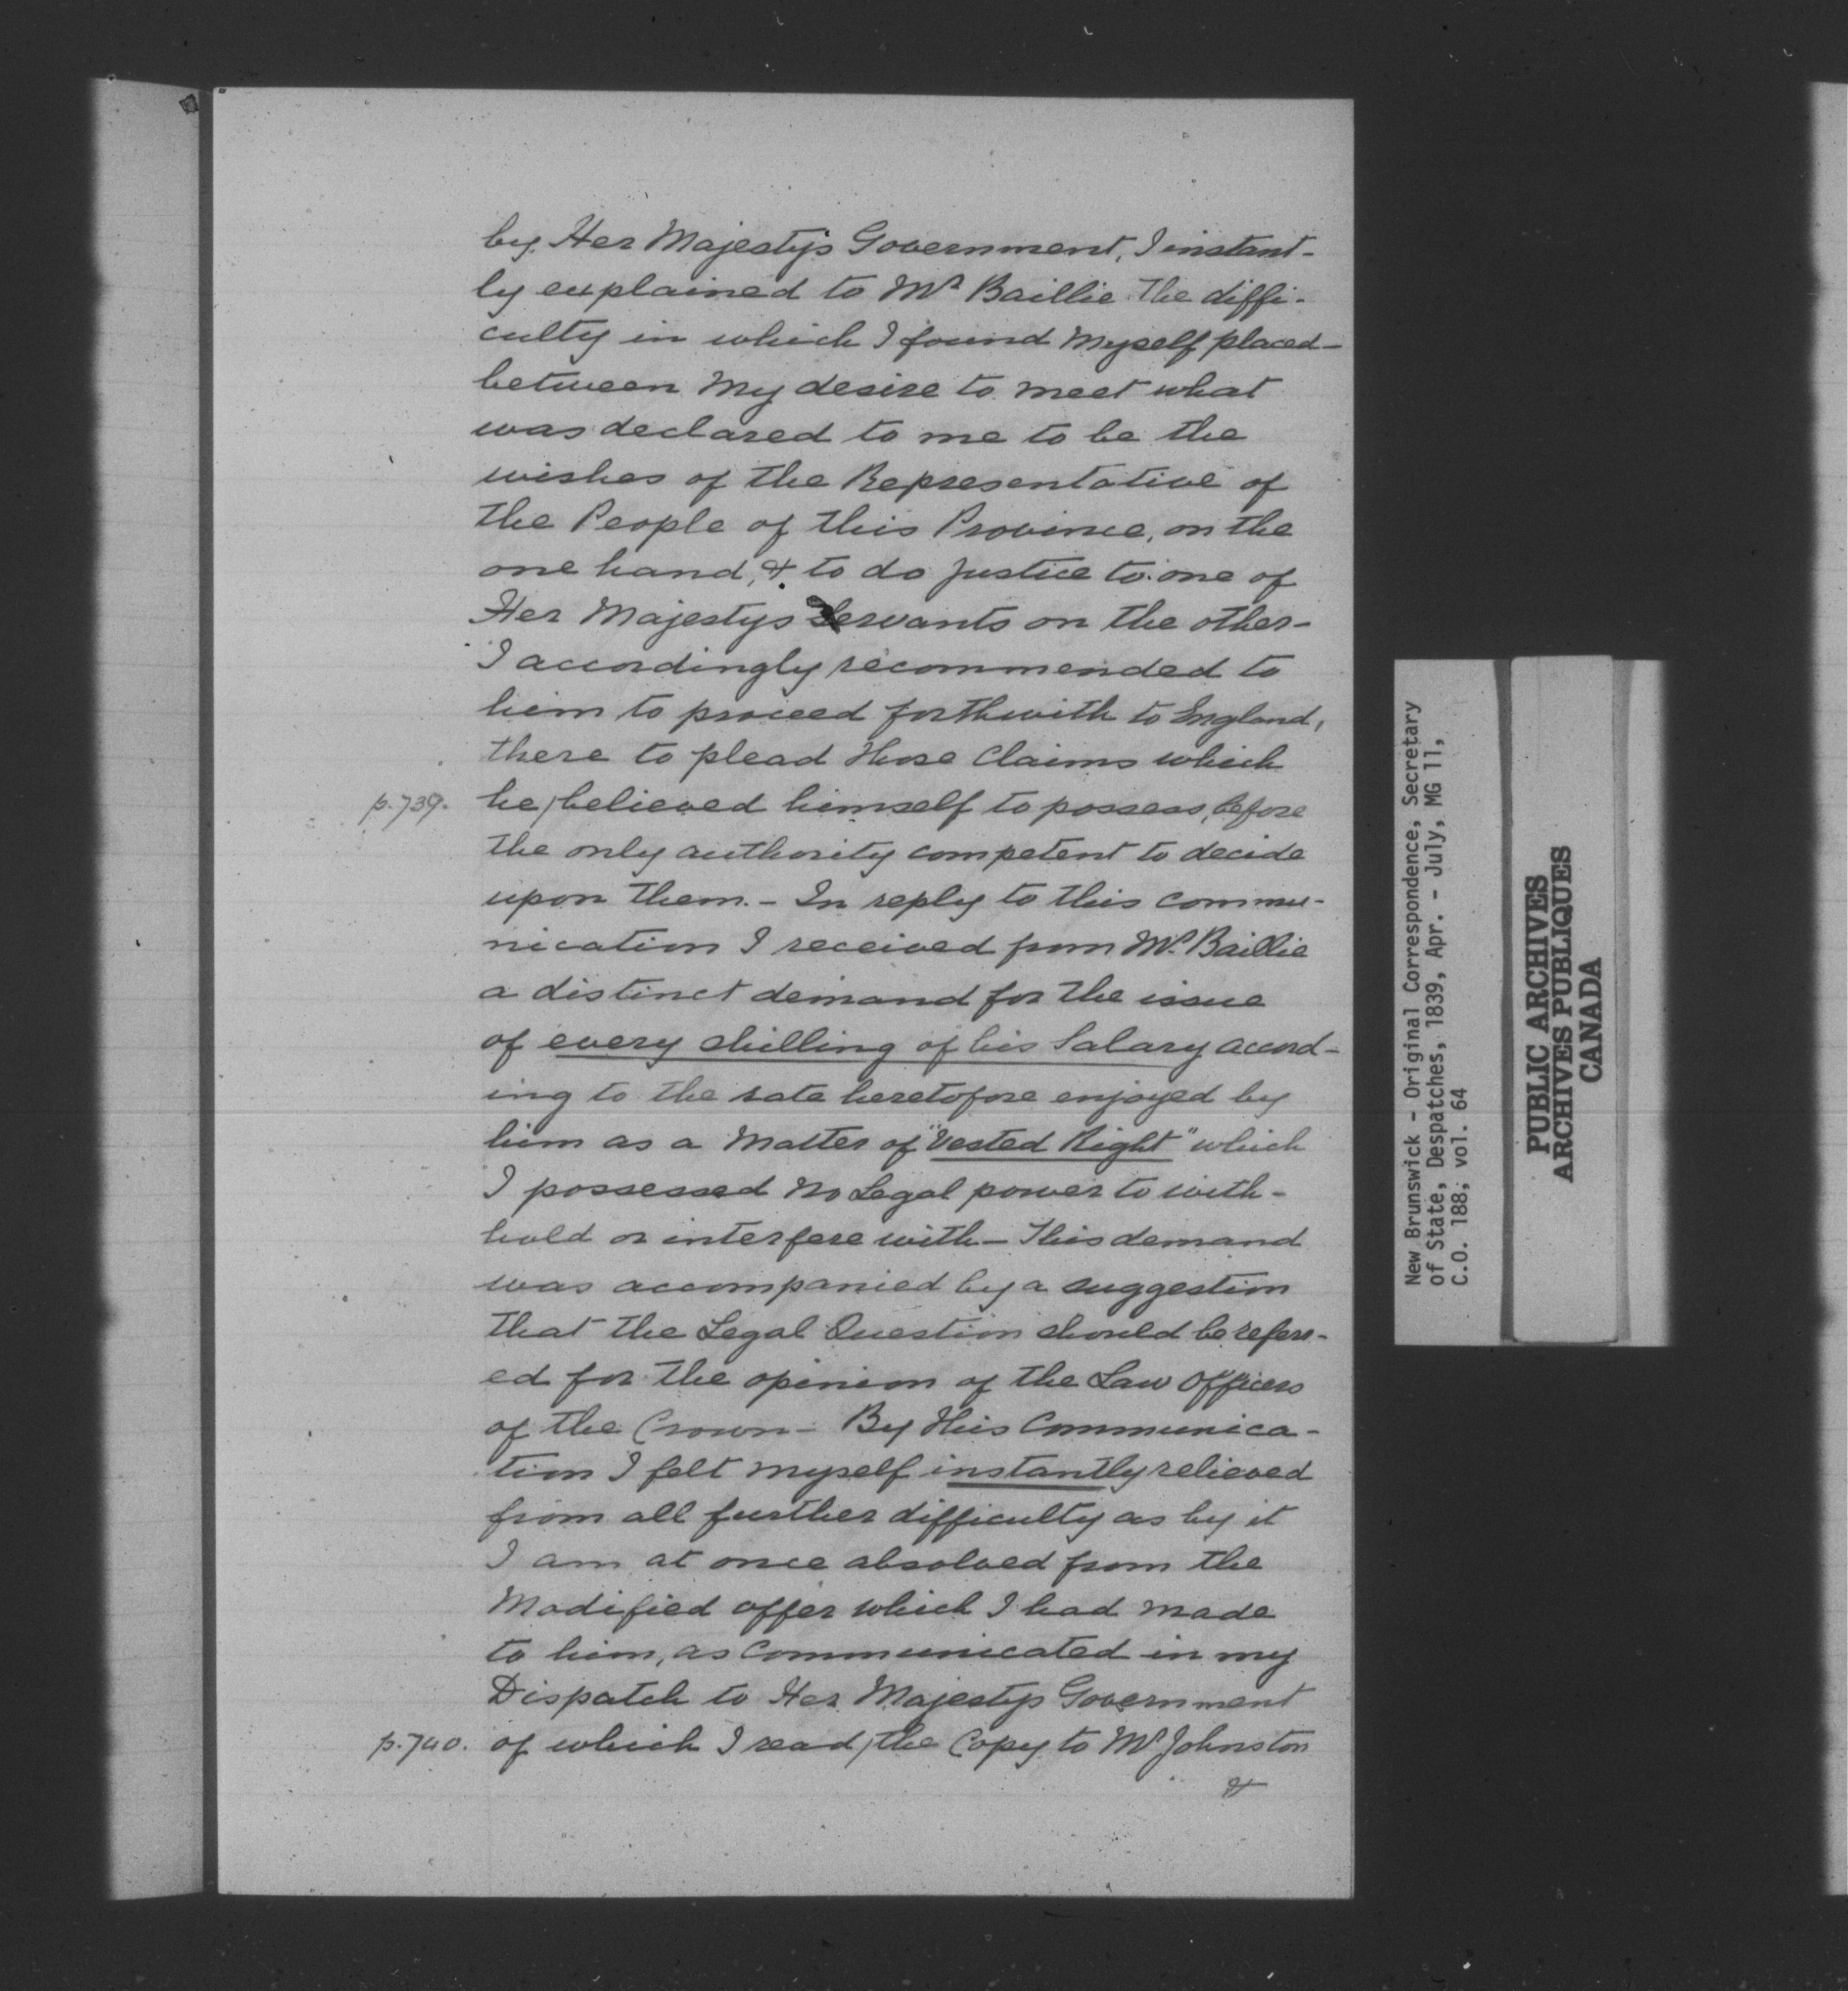 by Her Majesty's Government, I instant-
ly explained to Mr Baillie the diffi-
culty in which I found Myself placed-
between My desire to meet what
was declared to me to be the
wishes of the Representative of
the People of this Province, on the
one hand, & to do justice to one of
Her Majestys Servants on the other-
I accordingly recommended to
him to proceed forthwith to England,
there to plead those Claims which
p.739. he believed himself to possess, before
the only authority competent to decide
upon them. - In reply to this commu-
nication I received from Mr. Baillie
a distinct demand for the issue
of every shilling of his Salary accord-
ing to the rate heretofore enjoyed by
him as a Matter of "Vested Right" which
I possessed No Legal power to with-
hold or interfere with - This demand
was accompanied by a suggestion
that the Legal Question should be referr-
ed for the opinion of the Law Officers
of the Crown - By this Communica-
tion I felt myself instantly relieved
from all further difficulty as by it
I am at once absolved from the
Modified offer which I had made
to him, as Communicated in my
Dispatch to Her Majestys Government
p.740. of which I read, the Copy to Mr Johnston
&
New Brunswick - Original Correspondence, Secretary
of State, Despatches, 1839, Apr. - July, MG 11,
C.O. 188; vol. 64
PUBLIC ARCHIVES
ARCHIVES PUBLIQUES
CANADA